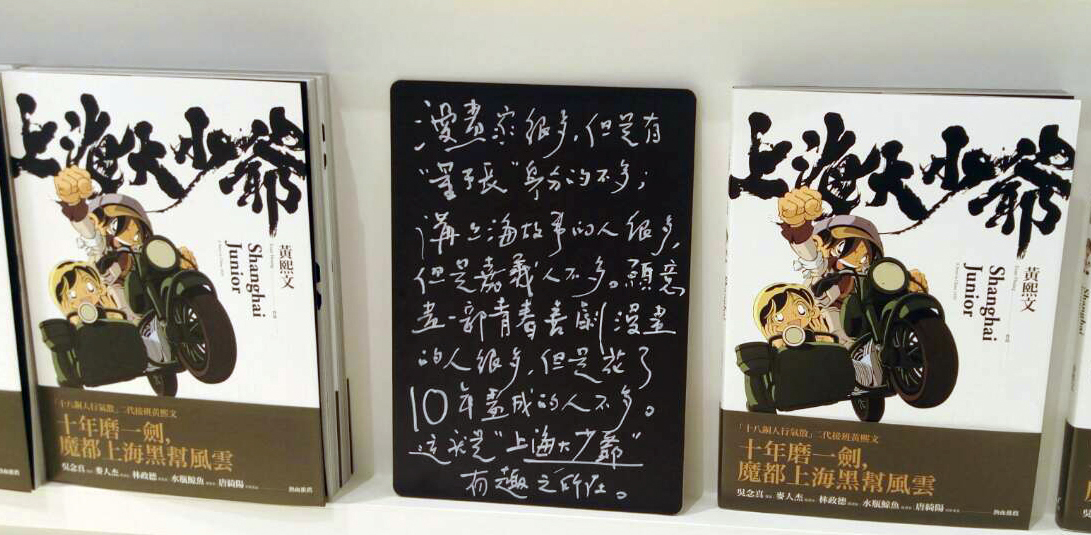 上海大少爺
黃熙文
Shanghai
Junior
「十八銅人行氣散」二代接班黃熙文
十年磨一劍,
魔都上海黑幫風雲
吳念真 麥人杰 林政德 水瓶鯨魚 唐綺陽 熱血推薦
漫畫家很多,但是有
"董事長"身分的不多;
講上海故事的人很多,
但是嘉義人不多。願意
畫一部青春喜劇漫畫
的人很多,但是花了
10年畫成的人不多。
這就是"上海大少爺"
有趣之所在。
上海大少爺
黃熙文
Shanghai
Junior
「十八銅人行氣散」二代接班黃熙文
十年磨一劍,
魔都上海黑幫風雲
吳念真 麥人杰 林政德 水瓶鯨魚 唐綺陽 熱血推薦